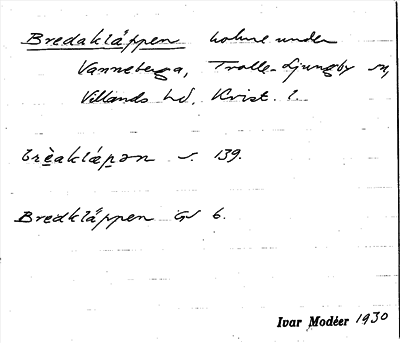 Bredakläppen holme under
Vanneberga, Trolle-Ljungby sn,
Villands hd. Krist. l.
brèaklæpən s. 139.
Bredkläppen GS 6.
Ivar Modéer 1930